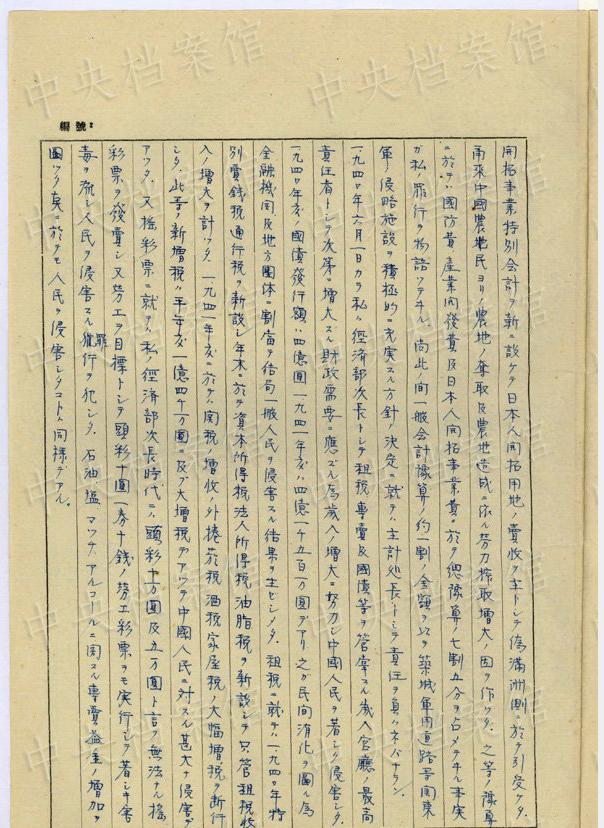 編號
開拓事業特別会計ヲ新ニ設ケテ日本人開拓用地ノ買收ヲ主トシテ偽滿洲側ニ於テ引受ケタ。
爾来中國農地民ヨリノ農地ノ奪取及農地造成ニ依ル労力搾取増大ノ因ヲ作ツタ。之等ノ豫算
ニ於テハ國防費産業開發費及日本人開拓事業費ニ於テ總豫算ノ七割五分ヲ占メテキル事実
ガ私ノ罪行ヲ物語ツテキル。尚此ノ間一般会計豫算ノ約一割ノ金額ヲ以テ築城軍用道路等関東
軍ノ侵略施設ヲ積極的ニ充実スル方針ノ決定ニ就テハ主計処長トシテ責任ヲ負ハネバナラン。
一九四〇年六月一日カラ私ハ經済部次長トシテ租税專賣及國債等ヲ管掌スル歳入官廳ノ最高
責任者トシテ次第ニ増大スル財政需要ニ應ズル為歳入ノ増大ニ努力シ中國人民ヲ著シク侵害シタ。
一九四〇年度ノ國債發行額ハ四億圓一九四一年度ハ四億一千五百万圓デアリ之ガ民間消化ヲ圖ル為
金融機関及地方團体ニ割當テ結局一般人民ヲ侵害スル結果ヲ生ゼシメタ。租税ニ就テハ一九四〇年特
別賣錢税通行税ヲ新設シ年末ニ於テ資本所得税法人所得税油脂税ヲ新設シテ只管租税收
入ノ増大ヲ計ツタ。一九四一年度ニ於テハ関税ノ増收ノ外捲菸税酒税家屋税ノ大幅増税ヲ断行
シタ。此等ノ新増税ハ平年度一億四千万圓ニ及ブ大増税デアツテ中國人民ニ対スル甚大ナ侵害デ
アツタ。又搖彩票ニ就テハ私ノ經済部次長時代ニハ頭彩十万圓及五万圓ト言フ無法ナル搖
彩票ヲ發賣シ又労工ヲ目標トシテ頭彩十圓一券十錢ノ労工彩票ヲモ実行シテ著シキ害
毒ヲ流シ人民ヲ侵害スル罪行ヲ犯シタ。石油塩マツチアルコールニ関スル專賣益金ノ増加ヲ
圖ツタ點ニ於テモ人民ヲ侵害シタコトハ同様デアル。
中央档案馆